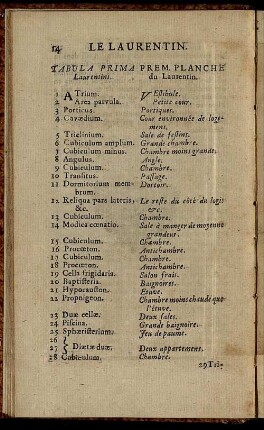 14 LE LAURENTIN.
TABULA PRIMA PREM. PLANCHE
Laurentini. du Laurentin.
1 ATrium. VEstibule.
2 Area parvula. Petite cour.
3 Porticus. Portiques.
4 Cavædium. Cour environnée de loge-
mens.
5 Triclinium. Sale de festins.
6 Cubiculum amplum. Grande chambre.
7 Cubiculum minus. Chambre moins grande.
8 Angulus. Angle.
9 Cubiculum. Chambre.
10 Transitus. Passage.
11 Dormitorium mem- Dortoir.
brum.
12 Reliqua pars lateris, Le reste du côté du logis
&c. &c.
13 Cubiculum. Chambre.
14 Modica cœnatio. Sale à manger de moyenne
grandeur.
15 Cubiculum. Chambre.
16 Procœton. Antichambre.
17 Cubiculum. Chambre.
18 Procœton. Antichambre.
19 Cella frigidaria. Salon frais.
20 Baptisteria. Baignoires.
21 Hypocauston. Etuve.
22 Propnigeon. Chambre moins chaude que
l'étuve.
23 Duæ cellæ. Deux sales.
24 Piscina. Grande baignoire.
25 Sphæristerium. Jeu de paume.
26
27 Diætæ duæ. Deux appartemens.
28 Cubiculum. Chambre.
29 Tri-